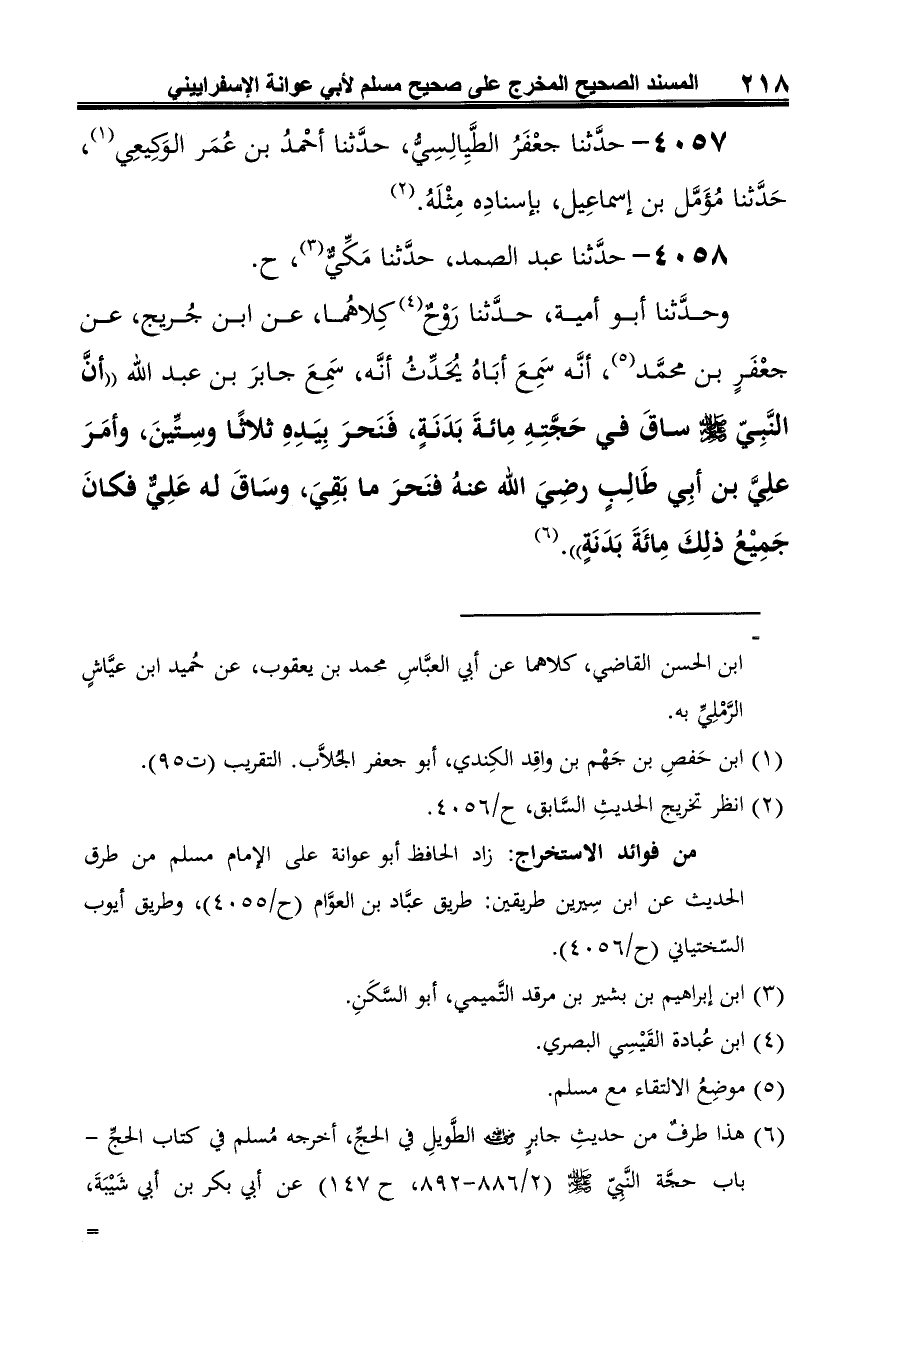 ٢١٨ المسند الصحيح المخرج على صحيح مسلم لأبي عوانة الإسفراييني
٤٠٥٧- حدَّثنا جعْفَرُ الطَّيِالِسِيُّ، حدَّثنا أحْمدُ بن عُمَر الوَكِيعِي(١)،
حَدَّثنا مُؤَمَّل بن إسماعِيل، بإسنادِه مِثْلَهُ.(٢)
٤٠٥٨- حدَّثنا عبد الصمد، حدَّثنا مَكِّيٌّ(٣)، ح.
وحدَّثنا أبو أمية، حدَّثنا رَوْحٌ(٤) كِلاهُما، عن ابن جُريج، عن
جعْفَرٍ بن محمَّد(٥)، أنَّه سَمِعَ أبَاهُ يُحَدِّثُ أنَّه، سَمِعَ جابرَ بن عبد الله ((أنَّ
النَّبِيّ ﷺ ساقَ في حَجَّتِهِ مِائةَ بَدَنَةٍ، فَنَحرَ بِيَدِهِ ثلاثًا وسِتِّينَ، وأمَرَ
علِيَّ بن أبِي طَالِبٍ رضِيَ الله عنهُ فنَحرَ ما بَقِيَ، وسَاقَ له عَلِيٌّ فكانَ
جَمِيْعُ ذلِكَ مِائَةَ بَدَنَةٍ)).(٦)
=
ابن الحسن القاضي، كلاهما عن أبي العبَّاسِ محمد بن يعقوب، عن حُميد ابن عيَّاشٍ
الرَّمْلِيِّ به.
(١) ابن حَفصِ بن جَهْم بن واقِد الكِندي، أبو جعفر الجُلاَّب. التقريب (ت٩٥).
(٢) انظر تخريج الحديثِ السَّابق، ح/٤٠٥٦.
من فوائد الاستخراج: زاد الحافظ أبو عوانة على الإمام مسلم من طرق
الحديث عن ابن سِيرين طريقين: طريق عبَّاد بن العوَّام (ح/٤٠٥٥)، وطريق أيوب
السّختياني (ح/٤٠٥٦).
(٣) ابن إبراهيم بن بشير بن مرقد التَّميمي، أبو السَّكَنِ.
(٤) ابن عُبادة القَيْسِي البصري.
(٥) موضِعُ الالتقاء مع مسلم.
(٦) هذا طرفٌ من حديثِ جابرٍ رضي الله عنه الطَّويلِ في الحجِّ، أخرجه مُسلم في كتاب الحجِّ -
باب حجَّة النَّبِيّ ﷺ (٨٨٦/٢-٨٩٢، ح ١٤٧) عن أبي بكر بن أبي شَيْبَةَ،
=